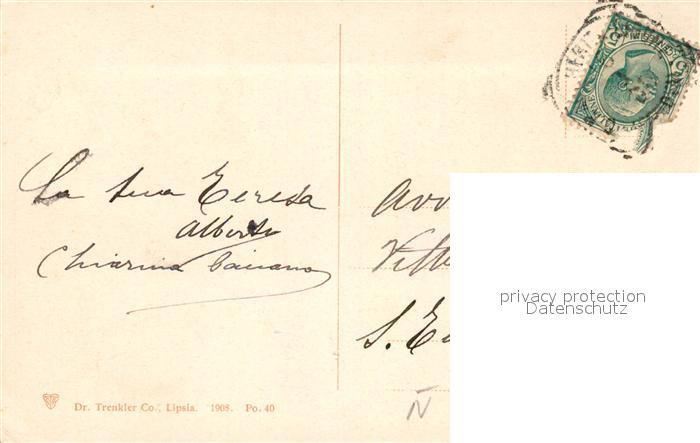 La tua Teresa
Alberto
Chiarina
Avv
Vill
S. E
privacy protection
Datenschutz
Dr. Trenkler Co., Lipsia. 1908. Po. 40
N